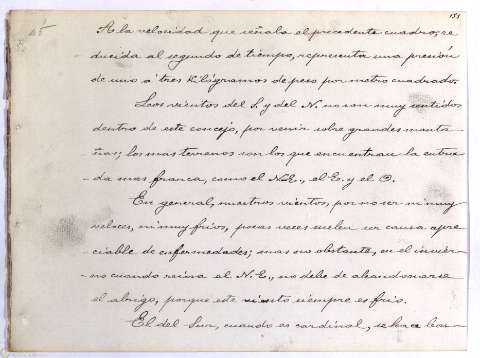 151
A la velocidad que señala el precedente cuadro, re
ducida al segundo de tiempo, representa una presión
de uno a tres kilógramos de peso por metro cuadrado.
Los vientos del S. y del N. no son muy sentidos
dentro de este concejo, por venir sobre grandes monta-
ñas; los mas terrenos son los que encuentran la entra-
da mas franca, como el N.E., el E. y el O.
En general, nuestros vientos, por no ser ni muy
veloces, ni muy frios, pocas veces suelen ser causa apre
ciable de enfermedades; mas no obstante, en el invier-
no cuando reina el N.E., no debe de abandonarse
el abrigo, porque este viento siempre es frio.
El del Sur, cuando es cardinal, se hace bas-